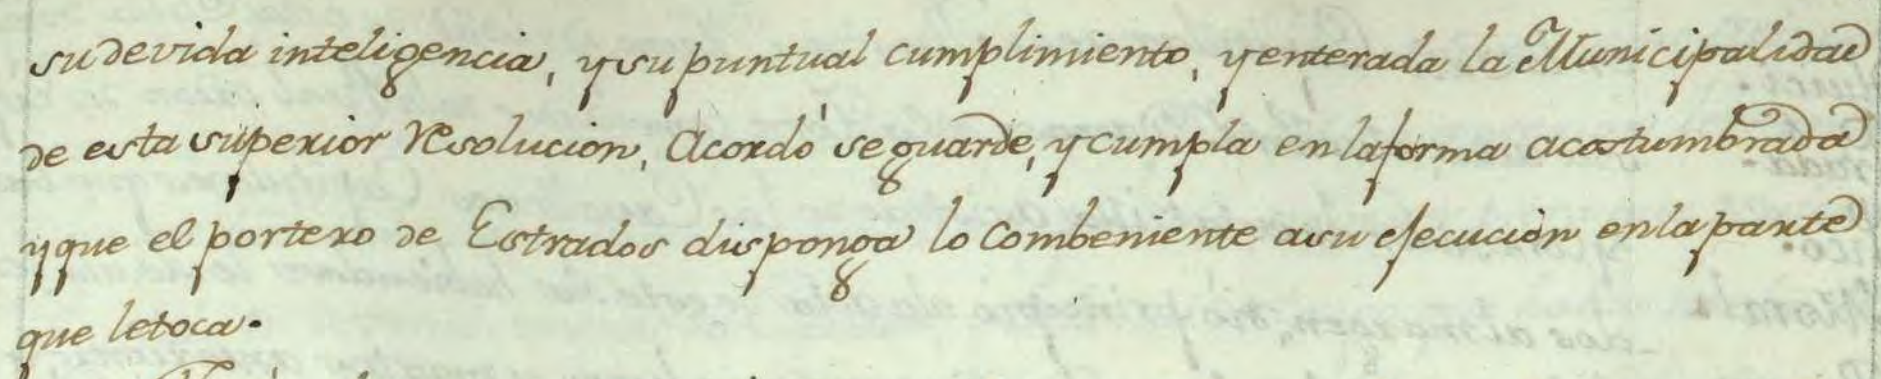 su devida inteligencia, y su puntual cumplimiento, y enterada la Municipalidad
de esta superior resolucion, Acordó se guarde, y cumpla en la forma acostumbrada
y que el portero de Estrados disponga lo Combeniente a su ejecución en la parte
que le toca.